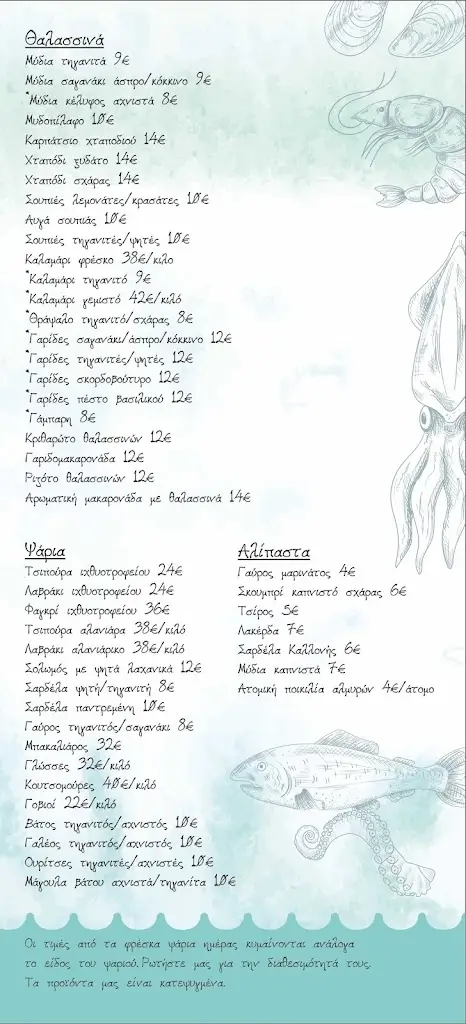 Θαλασσινά
Μύδια τηγανιτά 9€
Μύδια σαγανάκι άσπρο/κόκκινο 9€
*Μύδια κέλυφος αχνιστά 8€
Μυδοπίλαφο 10€
Καρπάτσιο χταποδιού 14€
Χταπόδι ξυδάτο 14€
Χταπόδι σχάρας 14€
Σουπιές λεμονάτες/κρασάτες 10€
Αυγά σουπιάς 10€
Σουπιές τηγανιτές/ψητές 10€
Καλαμάρι φρέσκο 38€/κιλο
*Καλαμάρι τηγανιτό 9€
*Καλαμάρι γεμιστό 42€/κιλό
*Θράψαλο τηγανιτό/σχάρας 8€
*Γαρίδες σαγανάκι/άσπρο/κόκκινο 12€
*Γαρίδες τηγανιτές/ψητές 12€
*Γαρίδες σκορδοβούτυρο 12€
*Γαρίδες πέστο βασιλικού 12€
*Γάμπαρη 8€
Κριθαρώτο θαλασσινών 12€
Γαριδομακαρονάδα 12€
Ριζότο θαλασσινών 12€
Αρωματική μακαρονάδα με θαλασσινά 14€
Ψάρια
Τσιπούρα ιχθυοτροφείου 24€
Λαβράκι ιχθυοτροφείου 24€
Φαγκρί ιχθυοτροφείου 36€
Τσιπούρα αλανιάρα 38€/κιλό
Λαβράκι αλανιάρικο 38€/κιλό
Σολωμός με ψητά λαχανικά 12€
Σαρδέλα ψητή/τηγανιτή 8€
Σαρδέλα παντρεμένη 10€
Γαύρος τηγανιτός/σαγανάκι 8€
Μπακαλιάρος 32€
Γλώσσες 32€/κιλό
Κουτσομούρες 40€/κιλό
Γοβιοί 22€/κιλό
Βάτος τηγανιτός/αχνιστός 10€
Γαλέος τηγανιτός/αχνιστός 10€
Ουρίτσες τηγανιτές/αχνιστές 10€
Μάγουλα βάτου αχνιστά/τηγανίτα 10€
Αλίπαστα
Γαύρος μαρινάτος 4€
Σκουμπρί καπνιστό σχάρας 6€
Τσίρος 5€
Λακέρδα 7€
Σαρδέλα Καλλονής 6€
Μύδια καπνιστά 7€
Ατομική ποικιλία αλμυρών 4€/άτομο
Οι τιμές από τα φρέσκα ψάρια ημέρας κυμαίνονται ανάλογα
το είδος του ψαριού. Ρωτήστε μας για την διαθεσιμότητά τους.
Τα προϊόντα μας είναι κατεψυγμένα.